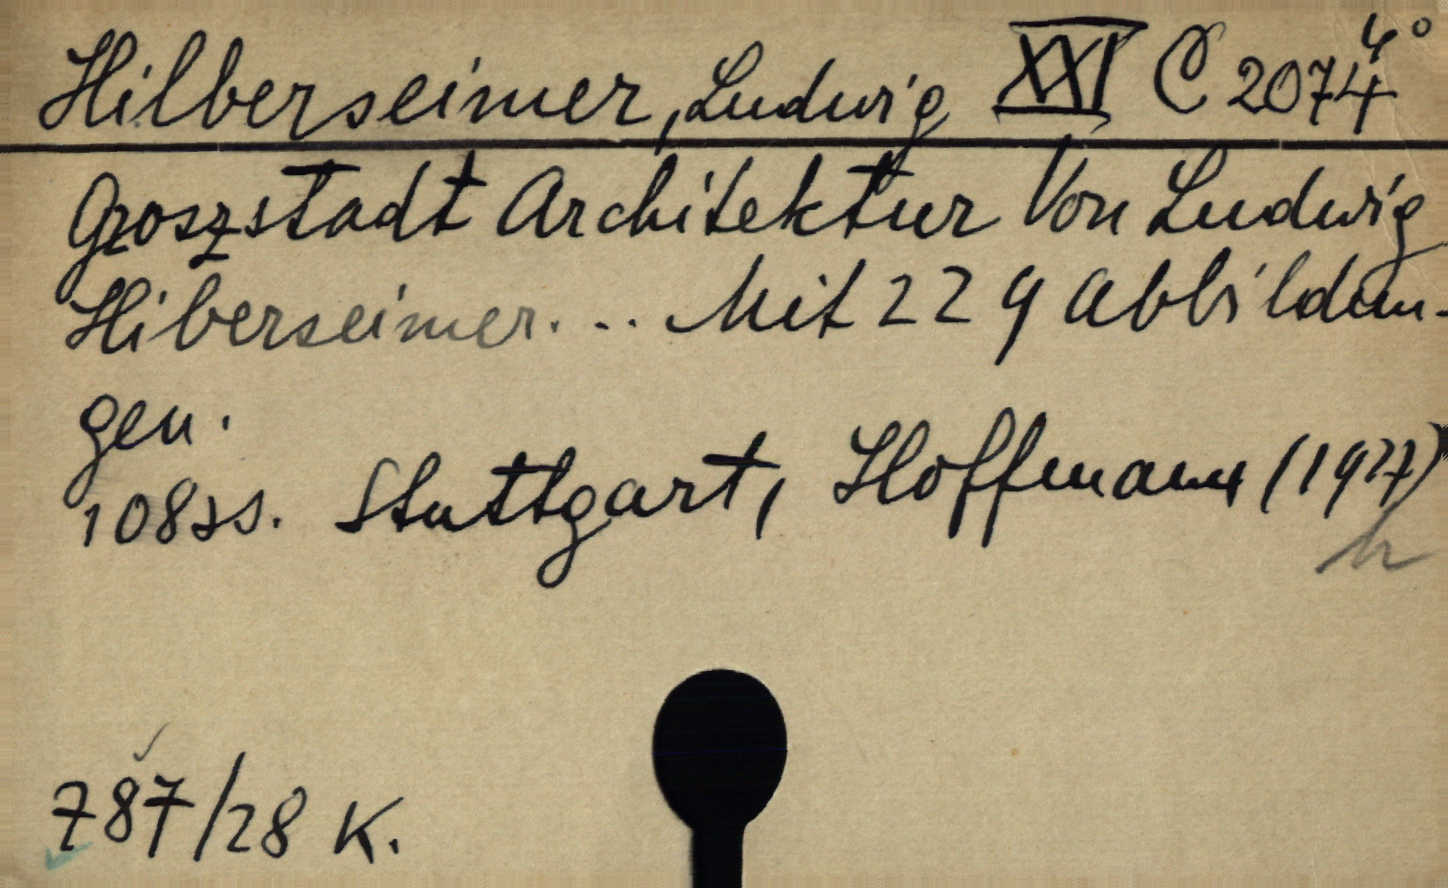 Hilberseimer, Ludwig XXI C 2074 4°
Groszstadt Architektur Von Ludwig
Hiberseimer. ... Mit 229 Abbildun-
gen.
108 ss. Stuttgart, Hoffmann (1927)
h
787/28 K.